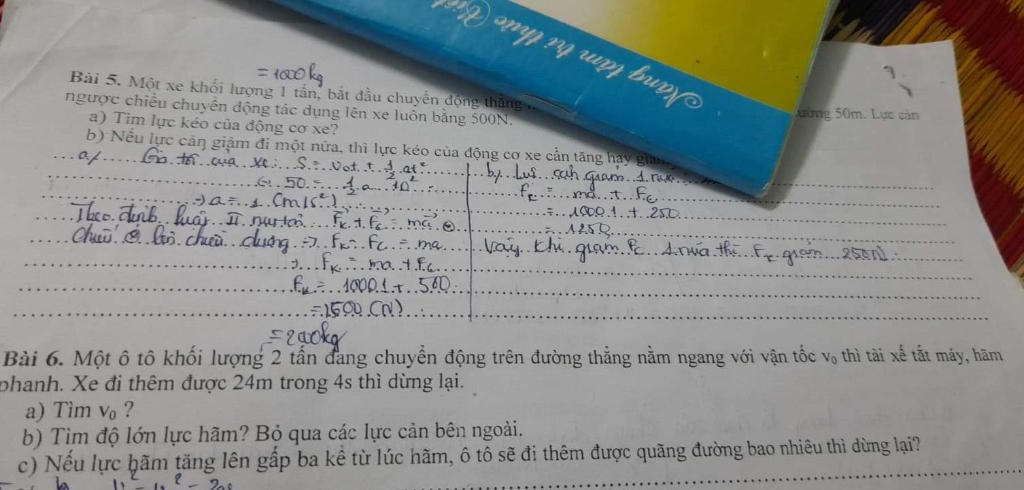 Nâng tầm tri thức Việt
= 1000kg
Bài 5. Một xe khối lượng 1 tấn, bắt đầu chuyển động thẳng
đường 50m. Lực cản
ngược chiều chuyển động tác dụng lên xe luôn bằng 500N.
a) Tìm lực kéo của động cơ xe?
b) Nếu lực cản giảm đi một nửa, thì lực kéo của động cơ xe cần tăng hay giảm
a/ Gia tốc của xe: S = V0t + 1/2 at²
50 = 1/2 a 10²
→ a = 1 (m/s²)
Theo định luật II niutơn Fk + Fc = ma ⊛
Chiếu ⊛ lên chiều dương → Fk - Fc = ma
→ Fk = ma + Fc
Fk = 1000.1 + 500
= 1500 (N)
b/ Lực cản giảm 1 nửa
Fk = ma + Fc
= 1000.1 + 250
= 1250
Vậy khi giảm Fc 1 nửa thì Fk giảm 250N
= 2000kg
Bài 6. Một ô tô khối lượng 2 tấn đang chuyển động trên đường thẳng nằm ngang với vận tốc v0 thì tài xế tắt máy, hãm
phanh. Xe đi thêm được 24m trong 4s thì dừng lại.
a) Tìm v0 ?
b) Tìm độ lớn lực hãm? Bỏ qua các lực cản bên ngoài.
c) Nếu lực hãm tăng lên gấp ba kể từ lúc hãm, ô tô sẽ đi thêm được quãng đường bao nhiêu thì dừng lại?